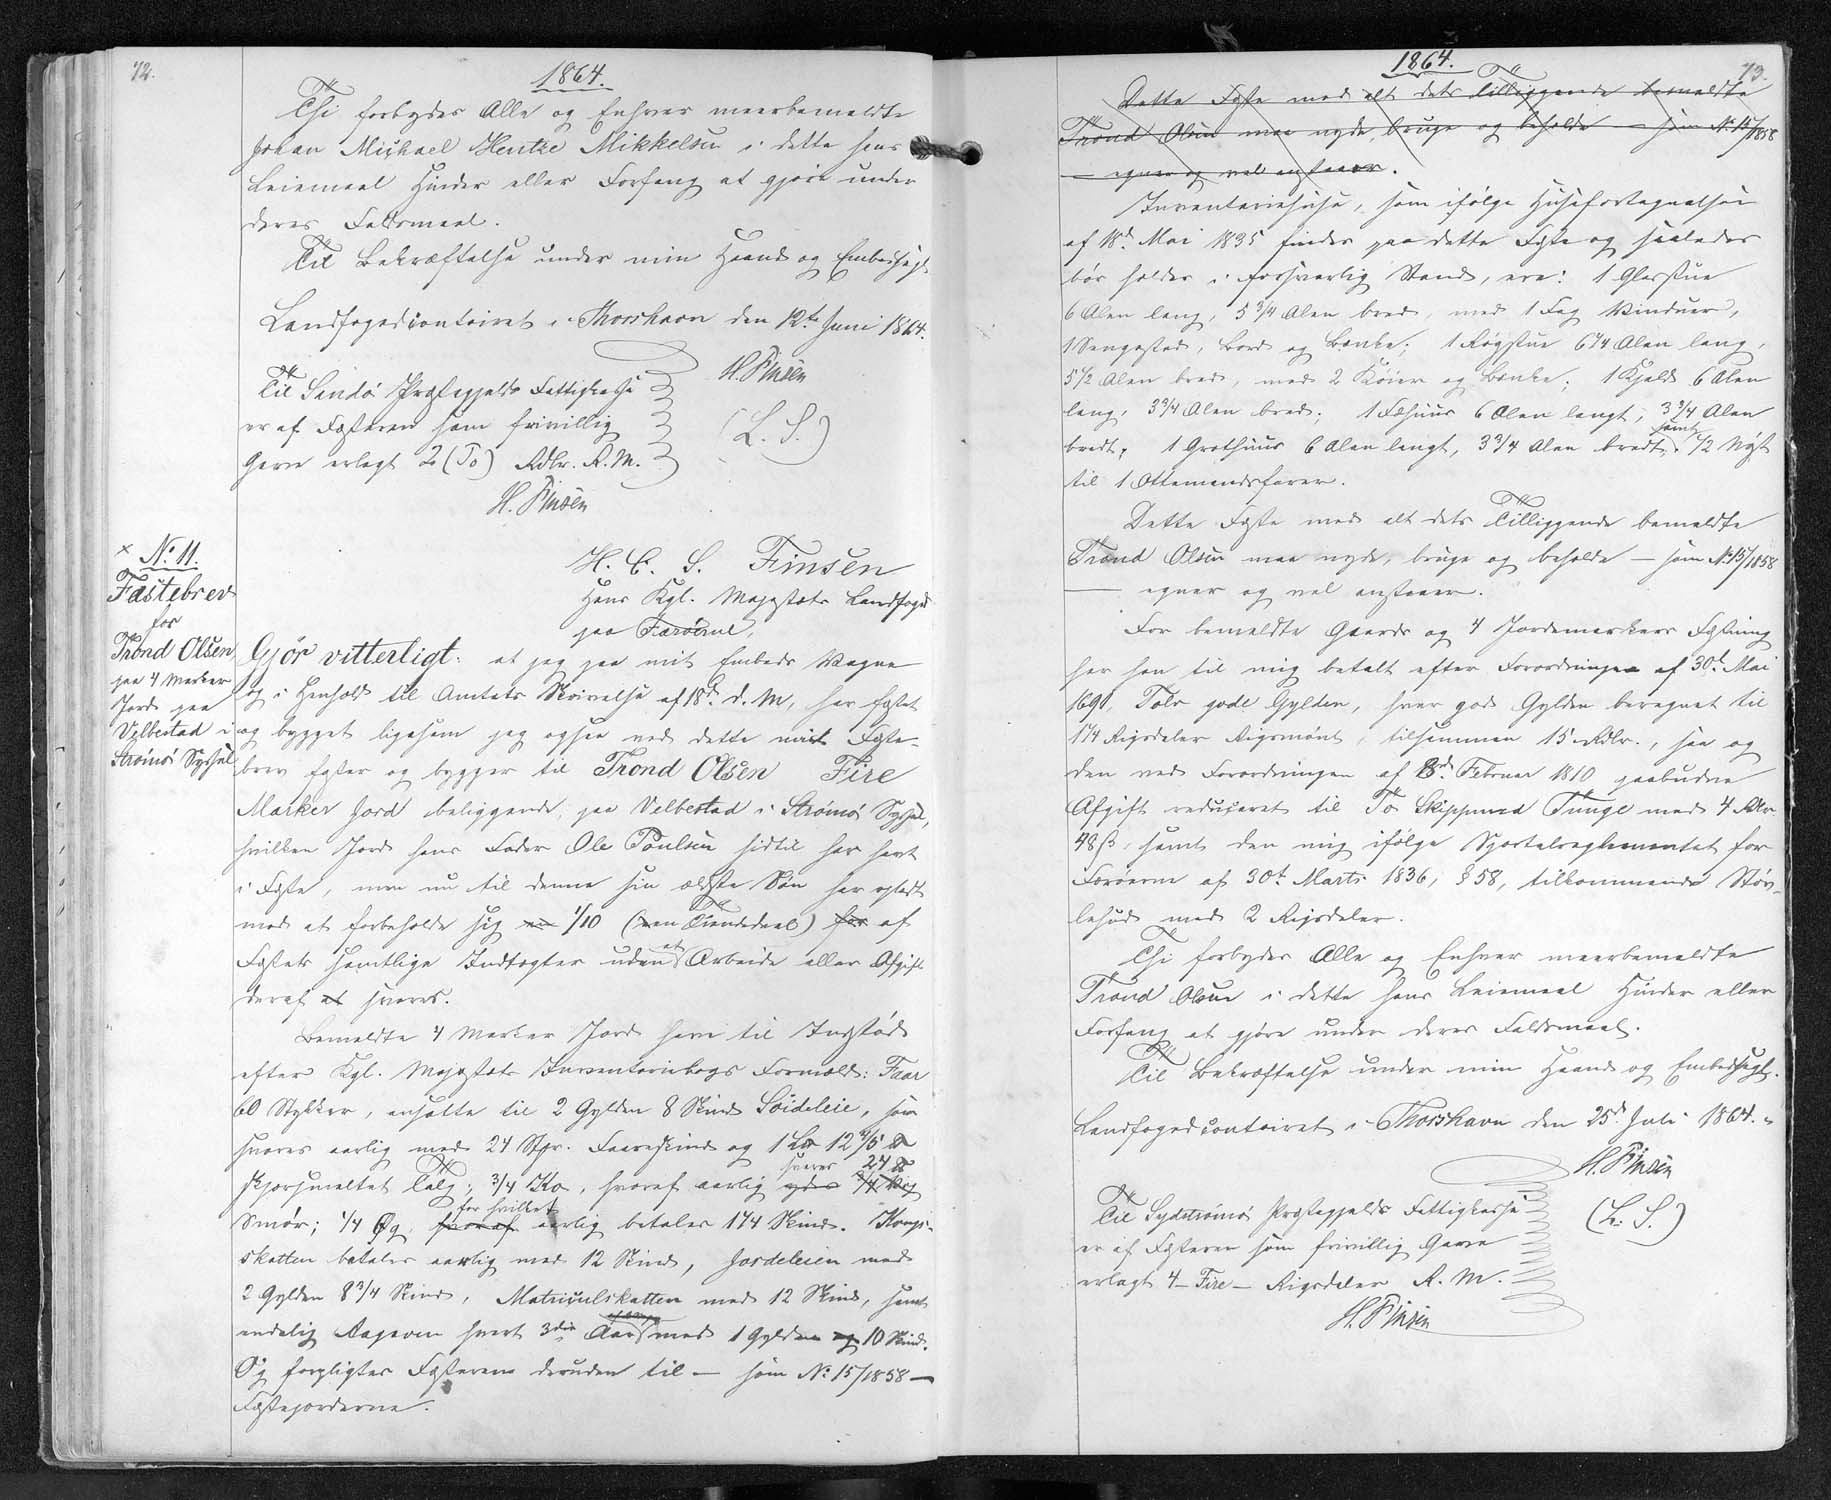 72.
1864.
Thi forbydes Alle og Enhver meerbemeldte
Johan Michael Hentze Mikkelsen i dette hans
Leiemaal Hinder eller Forfang at gjøre under
deres Faldsmaal.
Til Bekræftelse under min Haand og Embedssegl.
Landfogedcontoiret i Thorshavn den 12te Juni 1864.
H. Finsen
(L. S.)
Til Sandø Præstegjelds Fattigkasse
er af Fæsteren som frivillig
Gave erlagt 2 (To) Rdlr. R. M.
H. Finsen
× No. 11.
Fæstebrev
for
Trond Olsen
paa 4 Marker
Jord paa
Velbestad i
Strømø Syssel
H. C. S. Finsen
Hans Kgl. Majestæts Landfoged
paa Færøerne,
Gjør vitterligt: at jeg paa mit Embeds Vegne
og i Henhold til Amtets Skrivelse af 18d. d. M, har fæstet
og bygget ligesom jeg ogsaa ved dette mit Fæste-
brev fæster og bygger til Trond Olsen Fire
Marker Jord beliggende paa Velbestad i Strømø Syssel,
hvilken Jord hans Fader Ole Poulsen hidtil har havt
i Fæste, men nu til denne sin ældste Søn har opladt
mod at forbeholde sig 1/10 (een Tiendedeel) for af
Fæstets samtlige Indtægter uden at Arbeide eller Afgift
deraf at svares.
Bemeldte 4 Marker Jord have til Indstød
efter Kgl. Majestæts Inventariebogs Formeld: Faar
60 Stykker, ansatte til 2 Gylden 8 Skind Søideleie, som
svares aarlig med 24 Stkr. Faareskind og 1 L℔ 12 4/5 ℔
skjørsmeltet Talg; 3/4 Ko, hvoraf aarlig ydes svares 24 ℔
Smør; 1/4 Øg, hvoraf for hvilket aarlig betales 1 1/4 Skind. Kongs-
skatten betales aarlig med 12 Skind, Jordeleien med
2 Gylden 8 3/4 Skind, Matriculskatten med 12 Skind, samt
endelig Ragaven hvert 3die Aar med 1 Gylden og 10 Skind.
Og forpligtes Fæsteren desuden til — som No. 15/1858 —
Fæstejorderne.
1864.
73.
Dette Fæste med alt dets Tilliggende bemeldte
Trond Olsen maa nyde, bruge og beholde — som No. 15/1858
— egner og vel anstaaer.
Inventariehuse, som ifølge Huusefortegnelsen
af 18d. Mai 1835 findes paa dette Fæste og saaledes
bør holdes i forsvarlig Stand, ere: 1 Glasstue
6 Alen lang, 5 3/4 Alen bred, med 1 Fag Vinduer,
1 Sengested, Bord og Bænke; 1 Røgstue 6 1/4 Alen lang,
5 1/2 Alen bred, med 2 Køier og Bænke; 1 Kjeld 6 Alen
lang, 3 3/4 Alen bred; 1 Fæhuus 6 Alen langt, 3 3/4 Alen
bredt; 1 Grothuus 6 Alen langt, 3 3/4 Alen bredt, samt 1/2 Nøst
til 1 Ottemandsfarer.
Dette Fæste med alt dets Tilliggende bemeldte
Trond Olsen maa nyde, bruge og beholde — som No. 15/1858
— egner og vel anstaaer.
For bemeldte Gaards og 4 Jordemarkers Fæstning
har han til mig betalt efter Forordningen af 30d. Mai
1690, Tolv gode Gylden, hver god Gylden beregnet til
1 1/4 Rigsdaler Rigsmønt, tilsammen 15 Rdlr., saa og
den ved Forordningen af 8d. Februar 1810 paabudne
Afgift reduceret til To Skippund Tunge med 4 Rdlr
48 ß, samt den mig ifølge Sportelreglementet for
Færøerne af 30t. Marts 1836, § 58, tilkommende Støv-
lehud med 2 Rigsdaler.
Thi forbydes Alle og Enhver meerbemeldte
Trond Olsen i dette hans Leiemaal Hinder eller
Forfang at gjøre under deres Faldsmaal.
Til Bekræftelse under min Haand og Embedssegl.
Landfogedcontoiret i Thorshavn den 25d. Juli 1864.
H. Finsen
(L. S.)
Til Sydstrømø Præstegjelds Fattigkasse
er af Fæsteren som frivillig Gave
erlagt 4 — Fire — Rigsdaler R. M.
H. Finsen